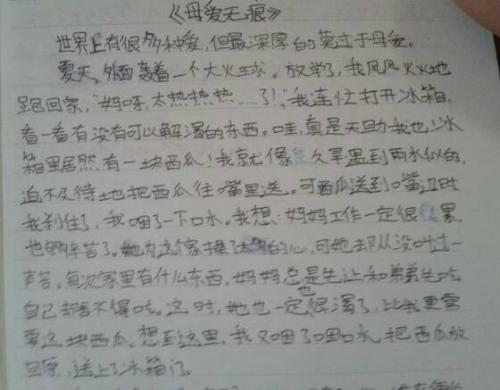 《母爱无痕》
世界上有很多种爱,但最深厚的莫过于母爱。
夏天,外面轰着一个大火球。放学了,我风风火火地
跑回家,"妈呀,太热热热……了!"我连忙打开冰箱,
看一看有没有可以解渴的东西。哇,真是天助我也!冰
箱里居然有一块西瓜!我就像久旱遇到雨水似的,
迫不及待地把西瓜往嘴里送。可西瓜送到嘴边时
我刹住了,我咽了一下口水。我想:妈妈工作一定很累,
也够辛苦了。她为这个家操了的心,可她却从没叫过一
声苦。每次家里有什么东西,妈妈总是先让和弟弟先吃
自己却舍不得吃。这时,她也一定也很渴了,比我更需
要这块西瓜。想到这里,我又咽了咽口水,把西瓜放
回原,送上了冰箱门。